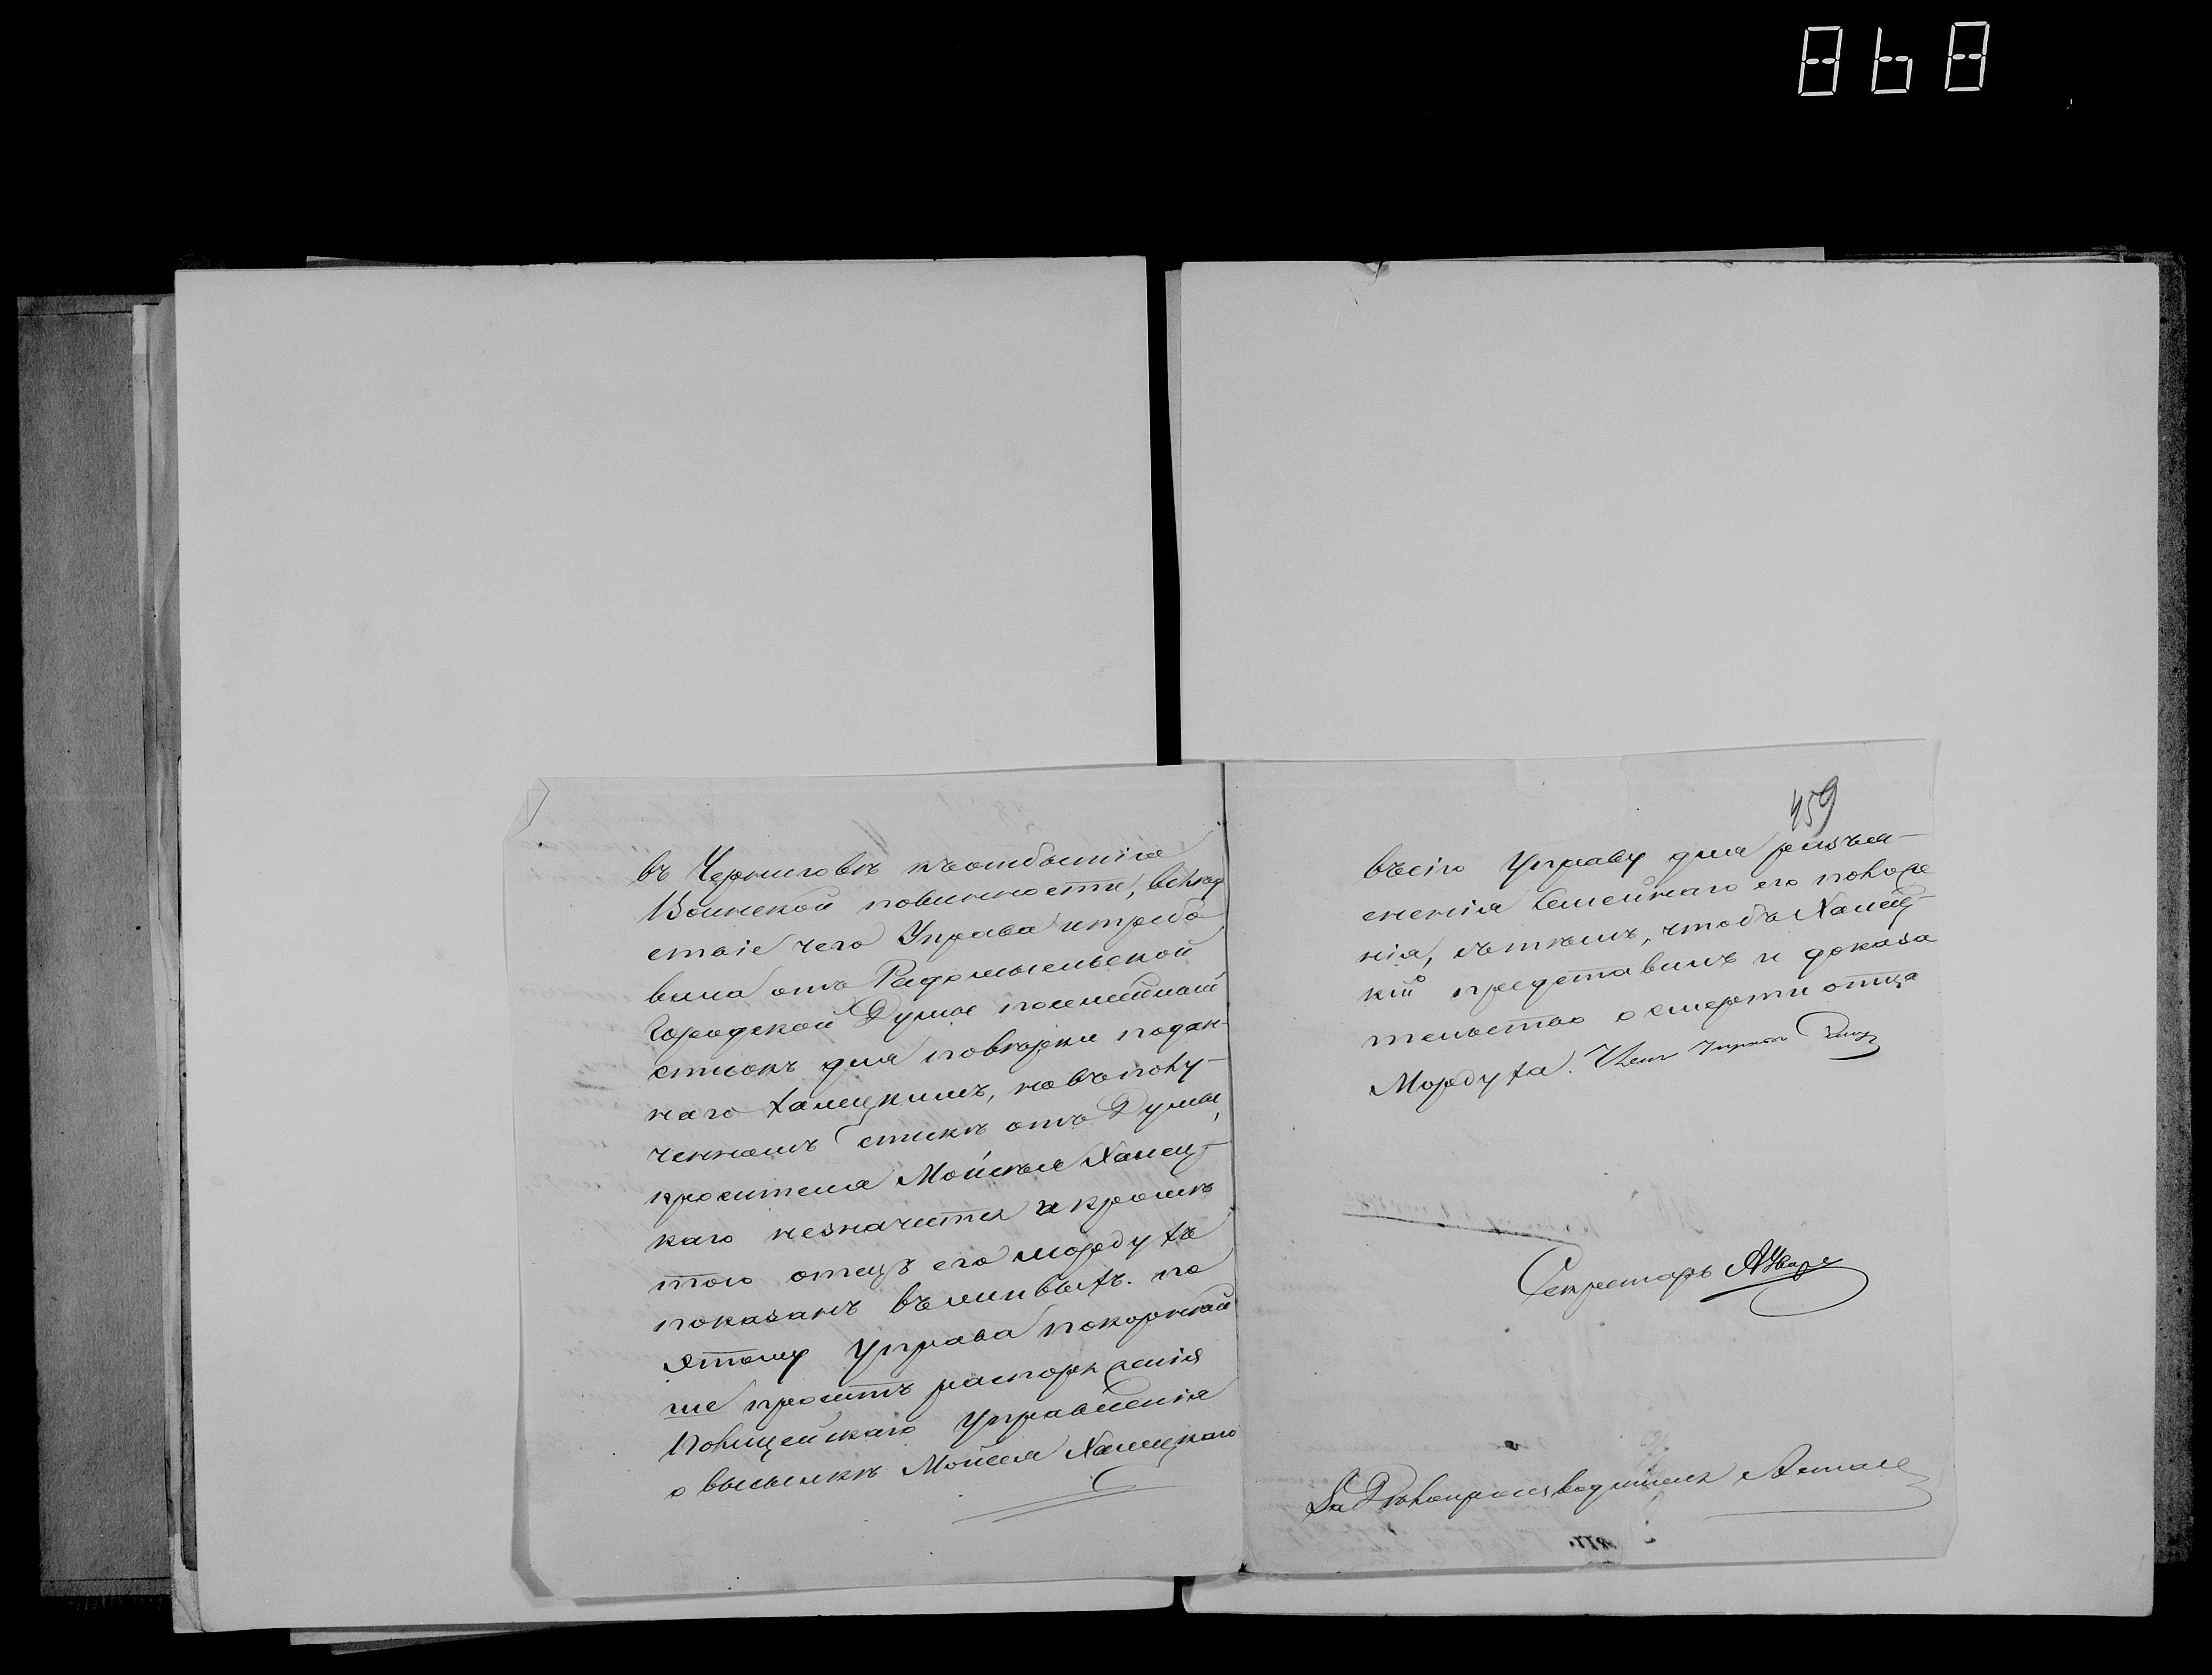 868
въ Черниговѣ къ отбытія
Воинской повинности, вслѣд
ствіе чего Управа истребо
вала отъ Радомысльской
Городской Думы посемейный
списокъ для повѣрки подан-
наго Халецкимъ, но въ полу-
ченномъ спискѣ отъ Думы,
просителя Мойсѣя Халец-
каго незначится и кромѣ
того отецъ его Мордухъ
показанъ въ живыхъ. по
этому Управа покорнѣй
ше проситъ распоряженія
Полицейскаго Управленія
о высылкѣ Мойсея Халецкаго
459
въ сію Управу для разъя-
сненія Семейнаго его положе
нія, съ тѣмъ, чтобъ Халец-
кій представилъ и доказа
тельство о смерти отца
Мордуха. Членъ Управы
Секретарь
За Дѣлопроизводителя